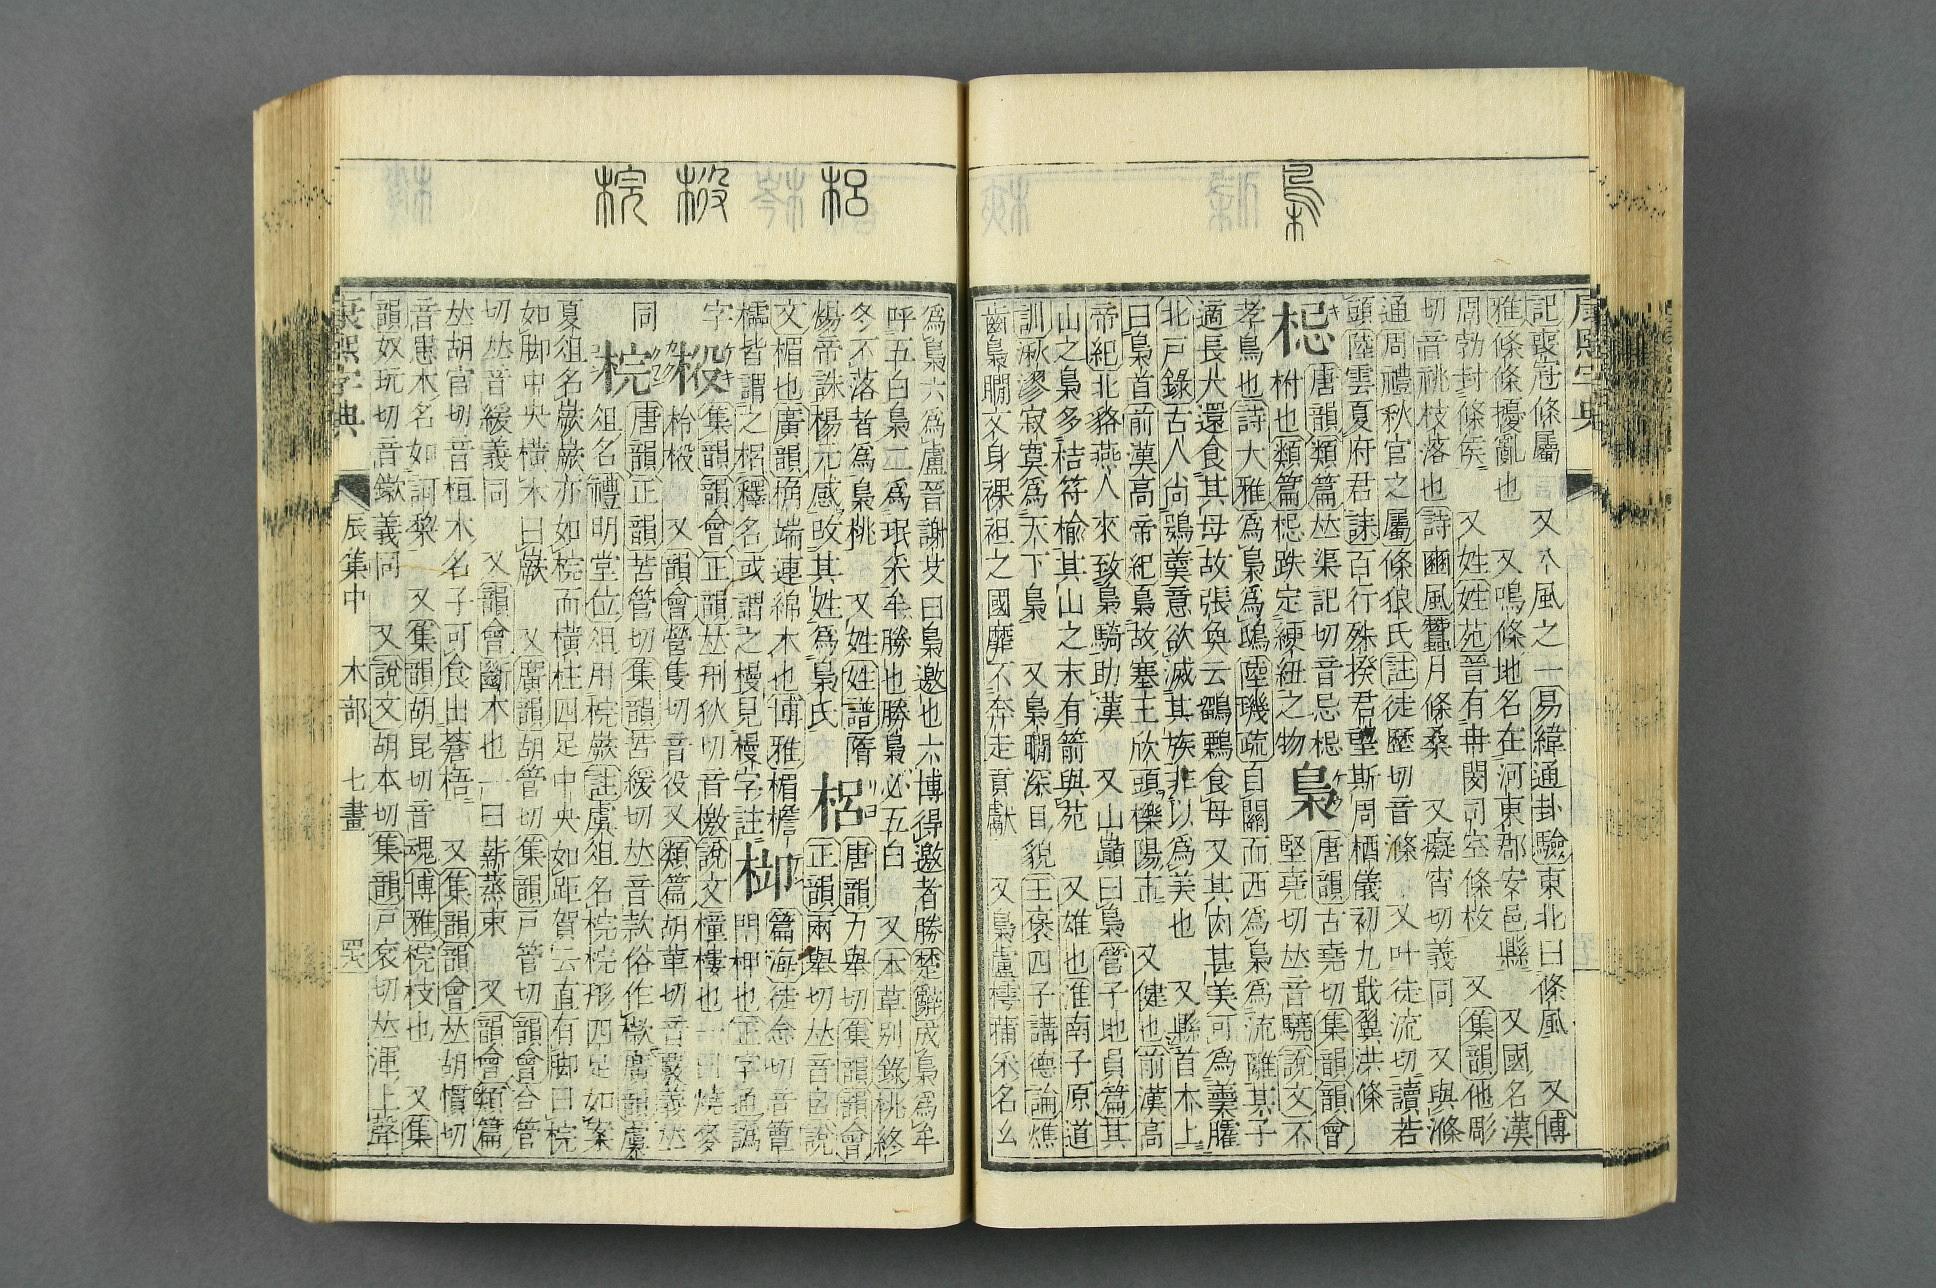 梟
記喪冠條屬　又八風之一易緯通卦驗東北曰條風　又博
雅條條擾亂也　又鳴條地名在河東郡安邑縣　又國名漢
周勃封條侯　又姓姓苑晉有冉閔司空條枚　又集韻他彫
切音祧枝落也詩豳風蠶月條桑　又癡宵切義同　又與滌
通周禮秋官之屬條狼氏註徒歷切音滌　又叶徒流切讀若
頭陸雲夏府君誄百行殊揆君望斯周栖儀初九戢翼洪條
梞
唐韻類篇𠀤渠記切音忌梞
柎也類篇梞跌定綆紐之物
梟
唐韻古堯切集韻韻會
堅堯切𠀤音驍說文不
孝鳥也詩大雅爲梟爲鴟陸璣疏自關而西爲梟爲流離其子
適長大還食其母故張奐云鶹鷅食母又其肉甚美可爲羹臛
北戸錄古人尙鴞羹意欲滅其族非以爲美也　又縣首木上
曰梟首前漢高帝紀梟故塞王欣頭櫟陽市　又健也前漢高
帝紀北貉燕人來致梟騎助漢　又山巓曰梟管子地員篇其
山之梟多桔符榆其山之末有箭與苑　又雄也淮南子原道
訓湫漻寂寞爲天下梟　又梟瞯深目貌王褒四子講德論燋
齒梟瞯文身裸袒之國靡不奔走貢獻　又梟盧樗蒲采名幺
康熙字典
梠
桵
梡
爲梟六爲盧晉謝艾曰梟邀也六博得邀者勝楚辭成梟爲牟
呼五白梟𠀤爲珉采牟勝也勝梟必五白　又本草別錄桃終
冬不落者爲梟桃　又姓姓譜隋
煬帝誅楊元感改其姓爲梟氏
梠
唐韻力舉切集韻韻會
正韻兩舉切𠀤音呂說
文楣也廣韻桷端連綿木也博雅楣檐
櫺皆謂之梠釋名或謂之槾見槾字註
篇海徒念切音簟
閉柙也正字通譌
字
集韻韻會正韻𠀤刑狄切音檄說文橦樓也　一曰燒麥
柃椴　又韻會營隻切音役又類篇胡革切音覈義𠀤
同
梡
唐韻正韻苦管切集韻苦緩切𠀤音款俗作㰸廣韻虞
俎名禮明堂位俎用梡嶡註虞俎名梡梡形四足如案
夏俎名嶡嶡亦如梡而橫柱四足中央如距賀云直有脚曰梡
如脚中央橫木曰嶡　又廣韻胡管切集韻戸管切韻會合管
切𠀤音緩義同　又韻會斷木也一曰薪蒸束　又韻會類篇
𠀤胡官切音桓木名子可食出蒼梧　又集韻韻會𠀤胡慣切
音患木名如訶黎　又集韻胡昆切音魂博雅梡枝也　又集
韻奴玩切音鏉義同　又說文胡本切集韻戸袞切𠀤渾上聲
康熙字典　辰集中　木部　七畫